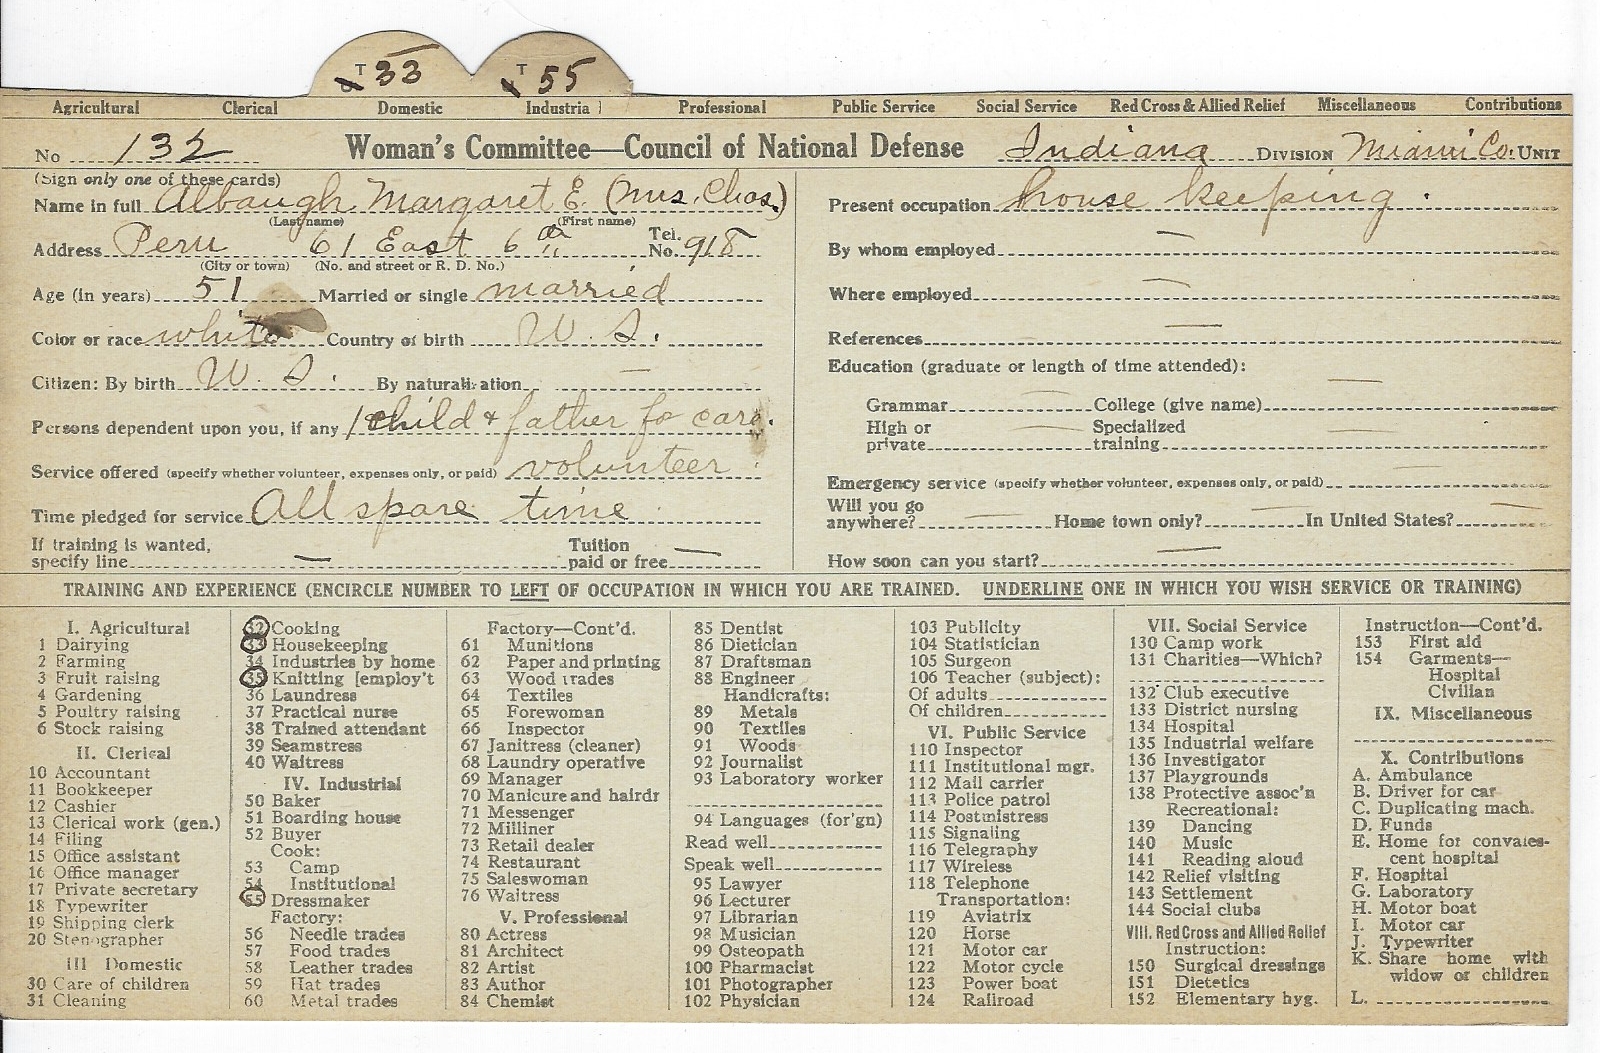 T 33 T 55
Agricultural Clerical Domestic Industrial Professional Public Service Social Service Red Cross & Allied Relief Miscellaneous Contributions
No 132 Woman's Committee—Council of National Defense Indiana DIVISION Miami Co. UNIT
(Sign only one of these cards)
Name in full Albaugh Margaret E. (Mrs. Chas.)
(Last name) (First name)
Address Peru 61 East 6th Tel. No. 918
(City or town) (No. and street or R. D. No.)
Age (in years) 51 Married or single married
Color or race white Country of birth U. S.
Citizen: By birth U. S. By naturalization —
Persons dependent upon you, if any 1 child & father fo care.
Service offered (specify whether volunteer, expenses only, or paid) volunteer
Time pledged for service All spare time
If training is wanted,
specify line — Tuition paid or free —
Present occupation house keeping.
By whom employed —
Where employed —
References —
Education (graduate or length of time attended): —
Grammar — College (give name) —
High or private — Specialized training —
Emergency service (specify whether volunteer, expenses only, or paid) —
Will you go anywhere? — Home town only? — In United States? —
How soon can you start? —
TRAINING AND EXPERIENCE (ENCIRCLE NUMBER TO LEFT OF OCCUPATION IN WHICH YOU ARE TRAINED. UNDERLINE ONE IN WHICH YOU WISH SERVICE OR TRAINING)
I. Agricultural
1 Dairying
2 Farming
3 Fruit raising
4 Gardening
5 Poultry raising
6 Stock raising
II. Clerical
10 Accountant
11 Bookkeeper
12 Cashier
13 Clerical work (gen.)
14 Filing
15 Office assistant
16 Office manager
17 Private secretary
18 Typewriter
19 Shipping clerk
20 Stenographer
III Domestic
30 Care of children
31 Cleaning
32 Cooking
33 Housekeeping
34 Industries by home
35 Knitting [employ't
36 Laundress
37 Practical nurse
38 Trained attendant
39 Seamstress
40 Waitress
IV. Industrial
50 Baker
51 Boarding house
52 Buyer
Cook:
53 Camp
54 Institutional
55 Dressmaker
Factory:
56 Needle trades
57 Food trades
58 Leather trades
59 Hat trades
60 Metal trades
Factory—Cont'd.
61 Munitions
62 Paper and printing
63 Wood trades
64 Textiles
65 Forewoman
66 Inspector
67 Janitress (cleaner)
68 Laundry operative
69 Manager
70 Manicure and hairdr
71 Messenger
72 Milliner
73 Retail dealer
74 Restaurant
75 Saleswoman
76 Waitress
V. Professional
80 Actress
81 Architect
82 Artist
83 Author
84 Chemist
85 Dentist
86 Dietician
87 Draftsman
88 Engineer
Handicrafts:
89 Metals
90 Textiles
91 Woods
92 Journalist
93 Laboratory worker
94 Languages (for'gn)
Read well
Speak well
95 Lawyer
96 Lecturer
97 Librarian
98 Musician
99 Osteopath
100 Pharmacist
101 Photographer
102 Physician
103 Publicity
104 Statistician
105 Surgeon
106 Teacher (subject):
Of adults
Of children
VI. Public Service
110 Inspector
111 Institutional mgr.
112 Mail carrier
113 Police patrol
114 Postmistress
115 Signaling
116 Telegraphy
117 Wireless
118 Telephone
Transportation:
119 Aviatrix
120 Horse
121 Motor car
122 Motor cycle
123 Power boat
124 Railroad
VII. Social Service
130 Camp work
131 Charities—Which?
132 Club executive
133 District nursing
134 Hospital
135 Industrial welfare
136 Investigator
137 Playgrounds
138 Protective assoc'n
Recreational:
139 Dancing
140 Music
141 Reading aloud
142 Relief visiting
143 Settlement
144 Social clubs
VIII. Red Cross and Allied Relief
Instruction:
150 Surgical dressings
151 Dietetics
152 Elementary hyg.
Instruction—Cont'd.
153 First aid
154 Garments—
Hospital
Civilian
IX. Miscellaneous
X. Contributions
A. Ambulance
B. Driver for car
C. Duplicating mach.
D. Funds
E. Home for convales-
cent hospital
F. Hospital
G. Laboratory
H. Motor boat
I. Motor car
J. Typewriter
K. Share home with
widow or children
L.